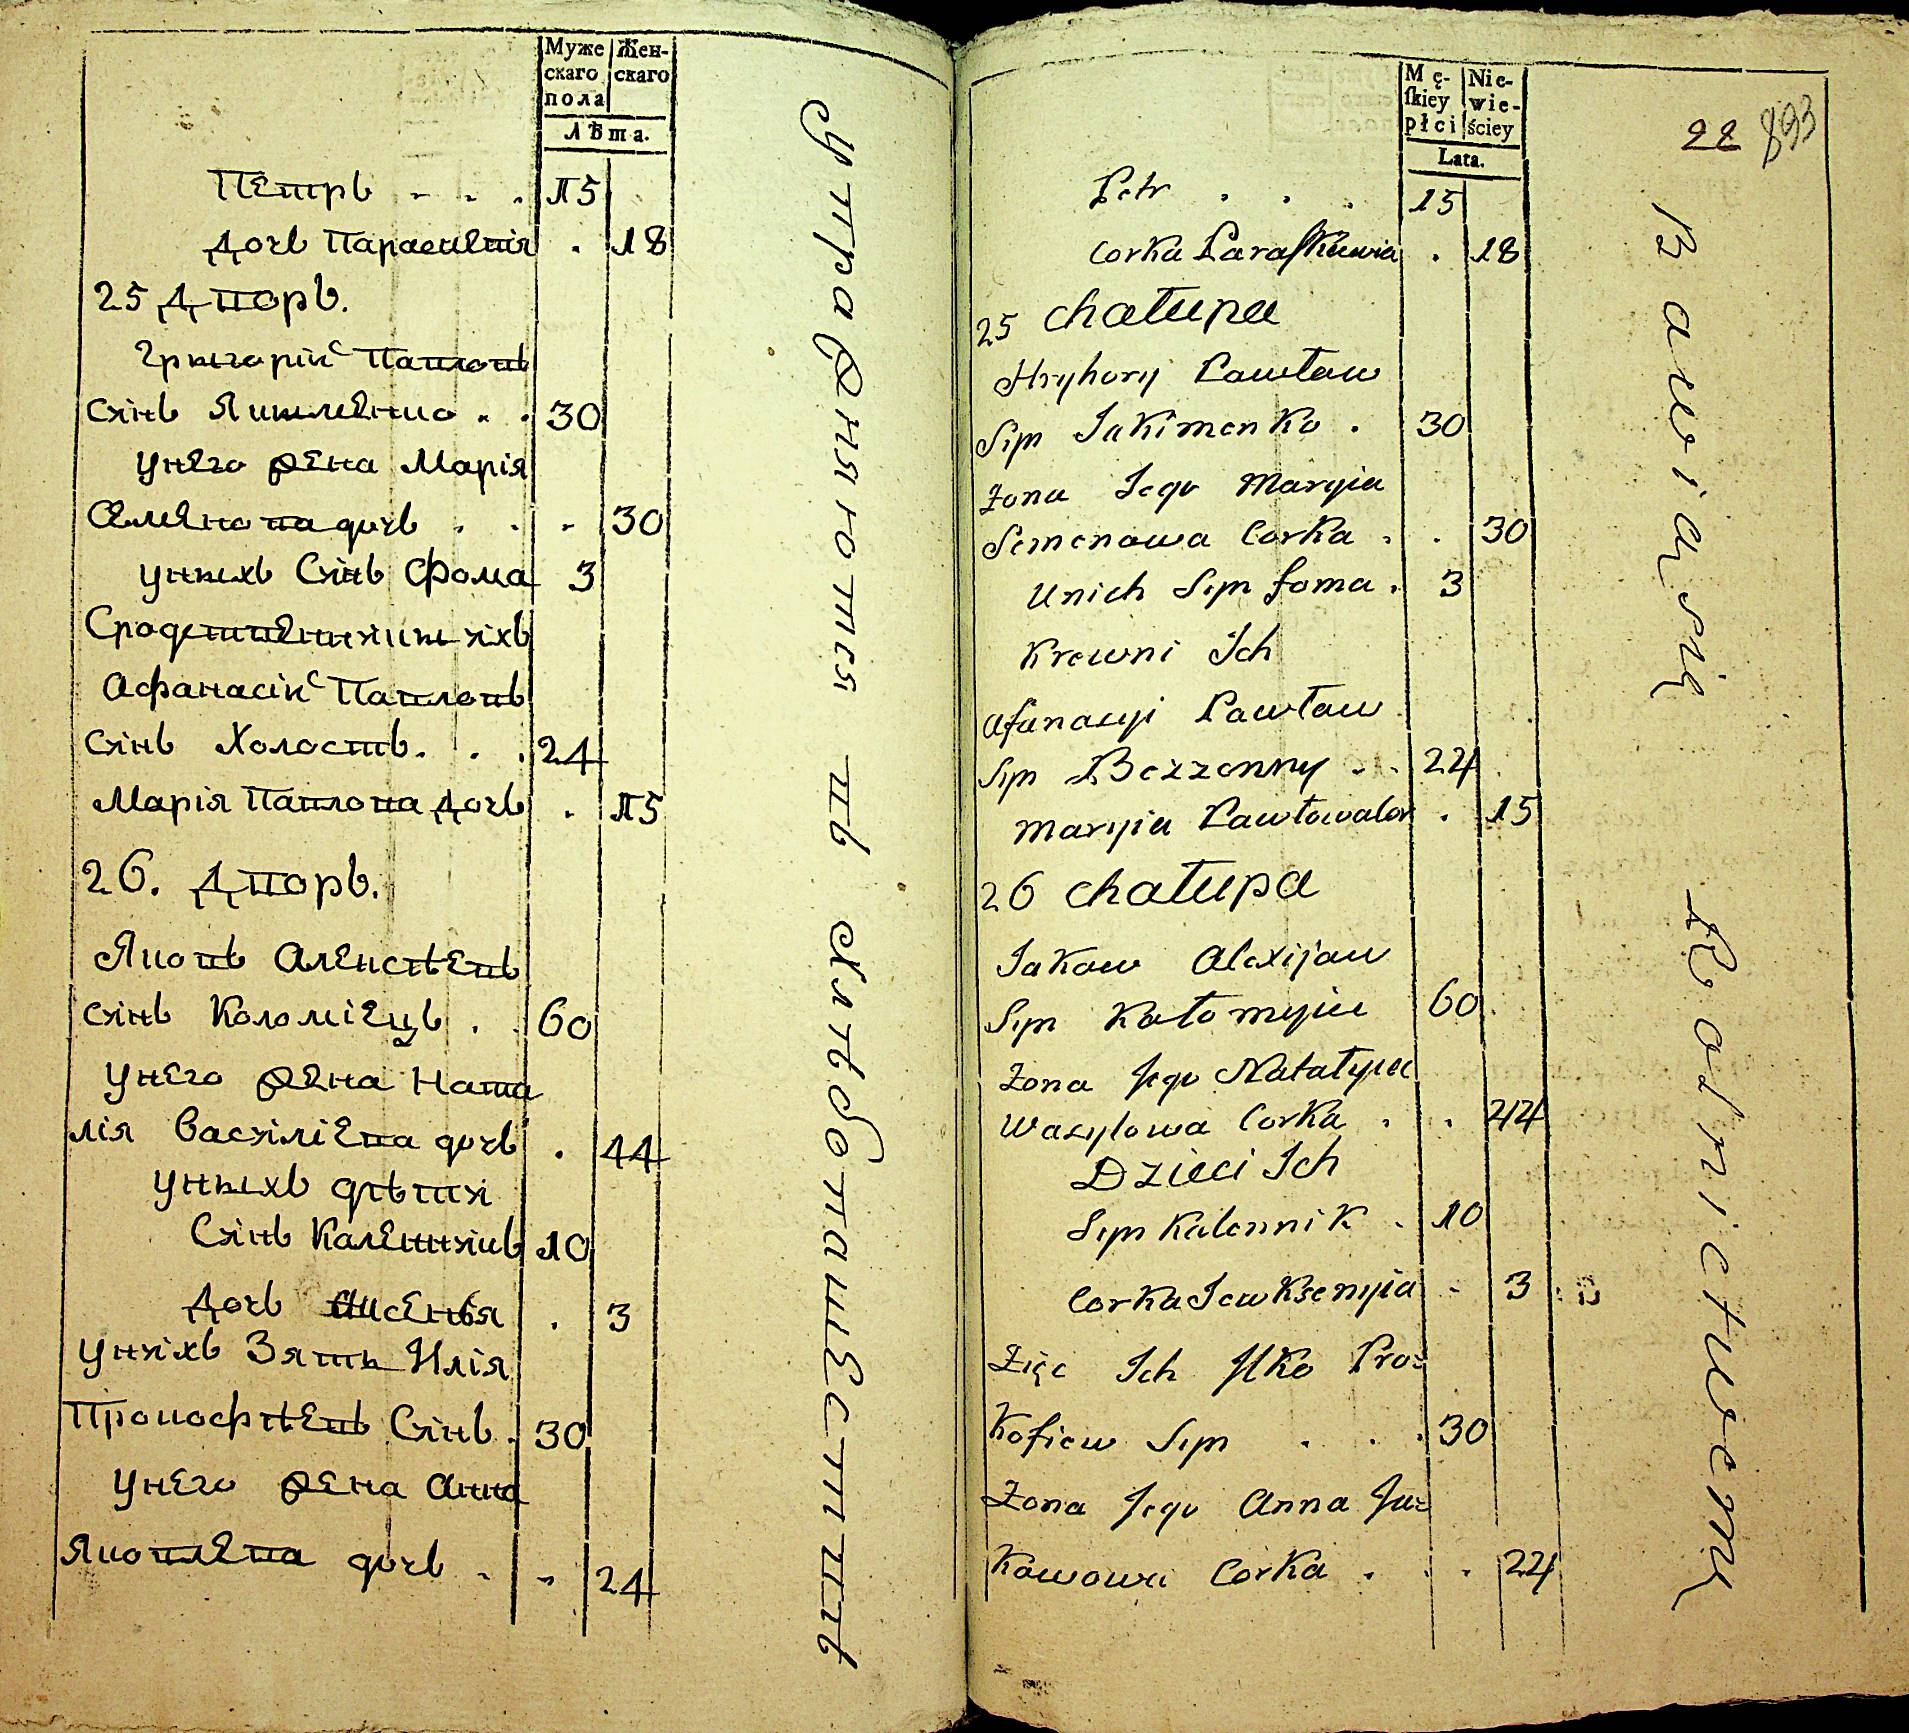 Муже
скаго
пола
Жен-
скаго
Лѣта.
Петръ . . . 15
Дочь Параскевія . 18
25 Дворъ.
Григорій Павловъ
сынъ Якименко . . 30
у него жена Марія
Семенова дочь . . . 30
у нихъ сынъ Фома 3
Сродственники ихъ
Афанасій Павловъ
сынъ Холостъ . . . 24
Марія Павлова дочь . 15
26. Дворъ.
Яковъ Алексѣевъ
сынъ Коломіецъ . . 60
у него жена Ната
лія Василіева дочь . 44
у нихъ дѣти
Сынъ Каленникъ 10
Дочь Ксенѣя . 3
у нихъ Зять Илія
Прокофѣевъ Сынъ . 30
у него жена Анна
Яковлева дочь . . 24
упражняются въ хлѣбопашествѣ
Mę-
ſkiey
płci
Nie-
wie-
ściey
Lata.
22 893
Petr . . . 15
Corka Paraſkiewia . 18
25 Chałupa
Hryhory Pawłow
Syn Jakimenko . 30
Zona Jego Maryia
Semenowa Corka . . 30
Unich Syn foma . 3
Krewni Ich
Afanasyi Pawłow
Syn Bezzenny . . 24
Maryia Pawłowa Cor . 15
26 Chałupa
Jakow Alexijow
Syn Kołomyiec 60
Zona Jego Natałyia
Wasylowa Corka . . 44
Dzieci Ich
Syn Kalennik . 10
Corka Jewksenyia . 3
Zięć Ich Ilko Pro=
Kofiew Syn . . . 30
Zona Jego Anna Ja=
Kowowa Corka . . . 24
Bawią się Rolnictwem